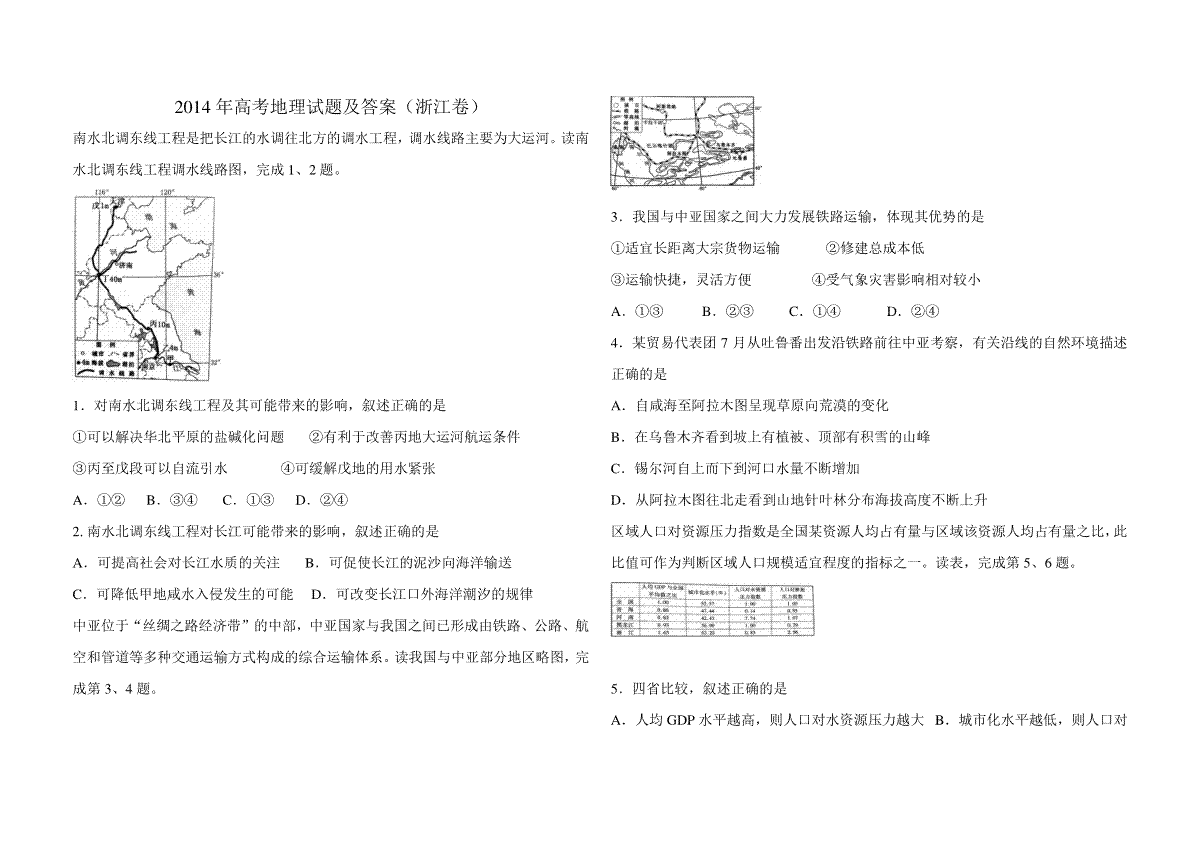 2014 年高考地理试题及答案（浙江卷）
南水北调东线工程是把长江的水调往北方的调水工程，调水线路主要为大运河。读南
水北调东线工程调水线路图，完成 1、2 题。
116° 120°
天津
戊1m
渤
海
济南
36°
丁40m
黄
海
丙10m
图 例
城市 省界
调水线路
4m
甲
32°
南京
1．对南水北调东线工程及其可能带来的影响，叙述正确的是
①可以解决华北平原的盐碱化问题 ②有利于改善丙地大运河航运条件
③丙至戊段可以自流引水 ④可缓解戊地的用水紧张
A．①② B．③④ C．①③ D．②④
2. 南水北调东线工程对长江可能带来的影响，叙述正确的是
A．可提高社会对长江水质的关注 B．可促使长江的泥沙向海洋输送
C．可降低甲地咸水入侵发生的可能 D．可改变长江口外海洋潮汐的规律
中亚位于“丝绸之路经济带”的中部，中亚国家与我国之间已形成由铁路、公路、航
空和管道等多种交通运输方式构成的综合运输体系。读我国与中亚部分地区略图，完
成第 3、4 题。
图 例
城 市
铁 路
3．我国与中亚国家之间大力发展铁路运输，体现其优势的是
①适宜长距离大宗货物运输 ②修建总成本低
③运输快捷，灵活方便 ④受气象灾害影响相对较小
A．①③ B．②③ C．①④ D．②④
4．某贸易代表团 7 月从吐鲁番出发沿铁路前往中亚考察，有关沿线的自然环境描述
正确的是
A．自咸海至阿拉木图呈现草原向荒漠的变化
B．在乌鲁木齐看到坡上有植被、顶部有积雪的山峰
C．锡尔河自上而下到河口水量不断增加
D．从阿拉木图往北走看到山地针叶林分布海拔高度不断上升
区域人口对资源压力指数是全国某资源人均占有量与区域该资源人均占有量之比，此
比值可作为判断区域人口规模适宜程度的指标之一。读表，完成第 5、6 题。
人均GDP与全国平均值之比 城市化水平(%) 人口对水资源压力指数 人口对耕地压力指数
全 国 1.00 52.57 1.00 1.00
青 海 0.86 47.44 0.14
河 南 0.82 42.43
黑龙江 0.93 56.90 1.00 0.29
浙 江 1.65 63.20 0.83
5．四省比较，叙述正确的是
A．人均 GDP 水平越高，则人口对水资源压力越大 B．城市化水平越低，则人口对